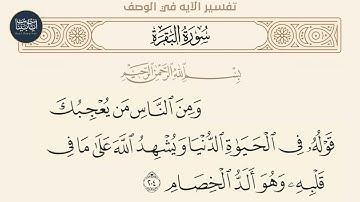 تفسير الآيه في الوصف
سُورَةُ البَقَرَةِ
بِسْمِ اللَّهِ الرَّحْمَٰنِ الرَّحِيمِ
وَمِنَ النَّاسِ مَن يُعْجِبُكَ
قَوْلُهُ فِي الْحَيَوٰةِ الدُّنْيَا وَيُشْهِدُ اللَّهَ عَلَىٰ مَا فِي
قَلْبِهِۦ وَهُوَ أَلَدُّ الْخِصَامِ ٢٠٤